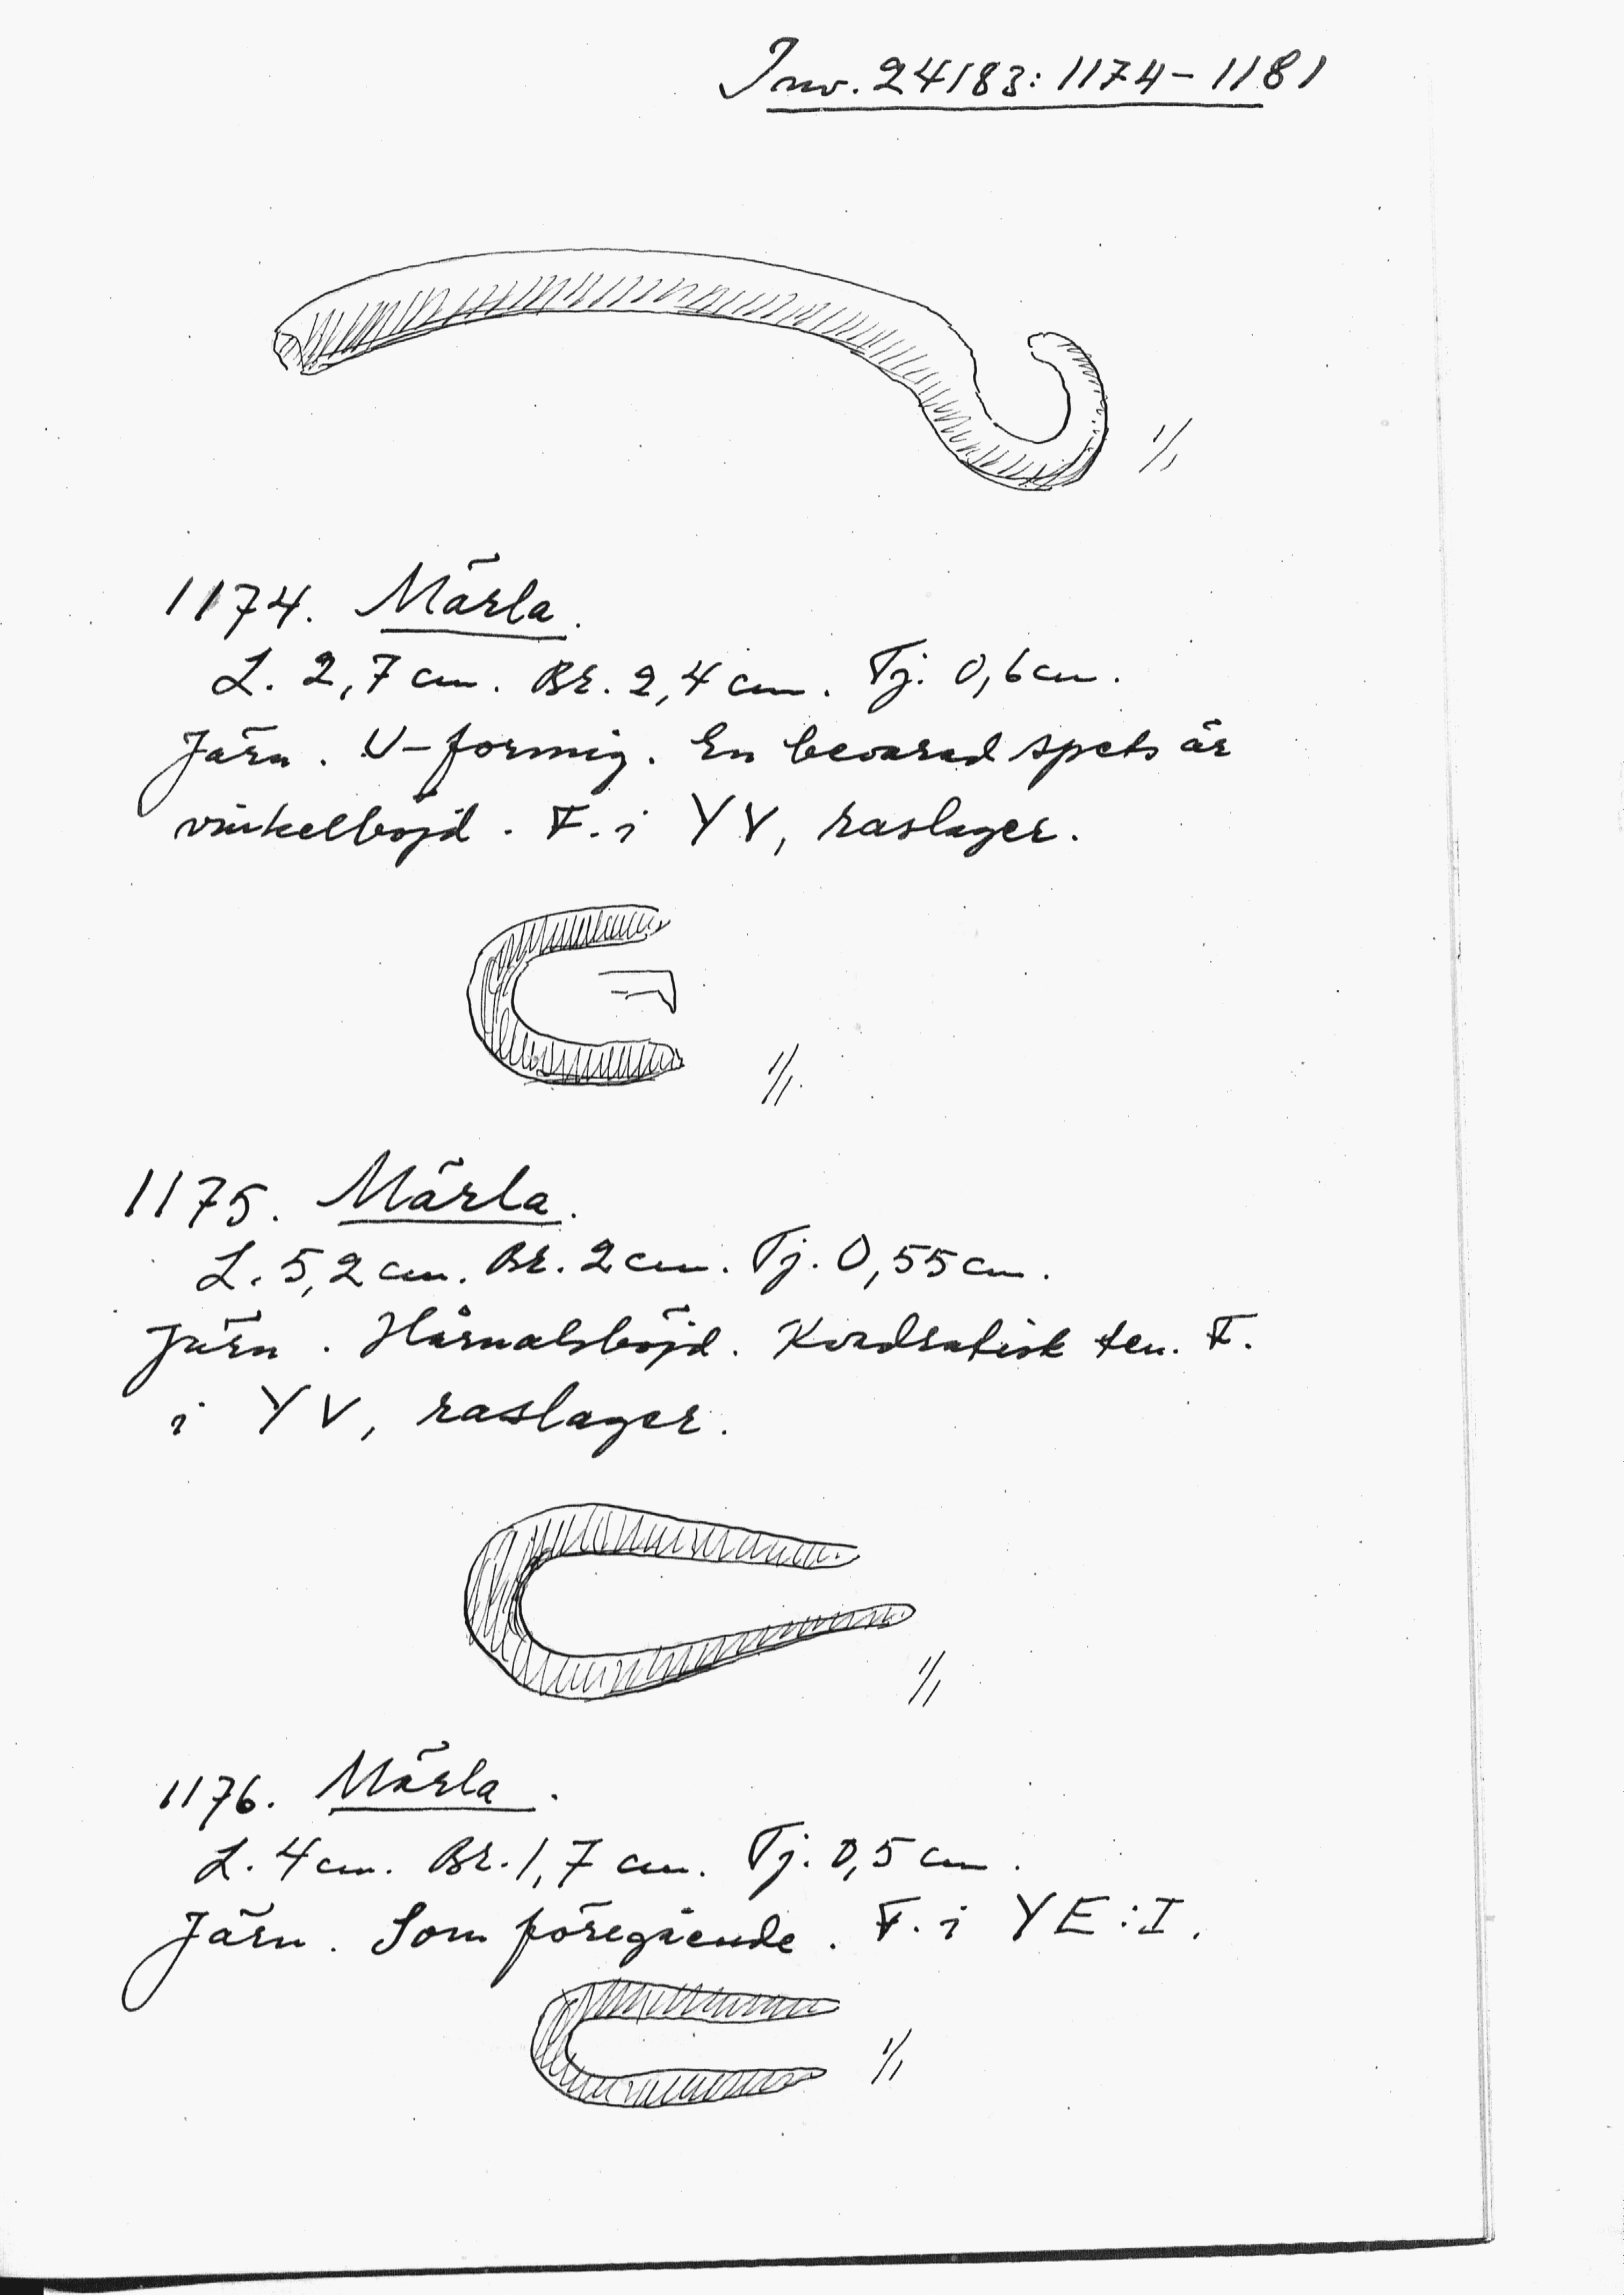 Inv. 24183: 1174-1181
1/1
1174. Märla.
L. 2,7 cm. Br. 2,4 cm. Tj. 0,6 cm.
Järn. U-formig. En bevarad spets är
vinkelböjd. F. i YV, raslager.
1/1.
1175. Märla.
L. 5,2 cm. Br. 2 cm. Tj. 0,55 cm.
Järn. Hårnålsböjd. Kvadratisk ten. F.
i YV, raslager.
1/1
1176. Märla.
L. 4 cm. Br. 1,7 cm. Tj. 0,5 cm.
Järn. Som föregående. F. i YE:I.
1/1